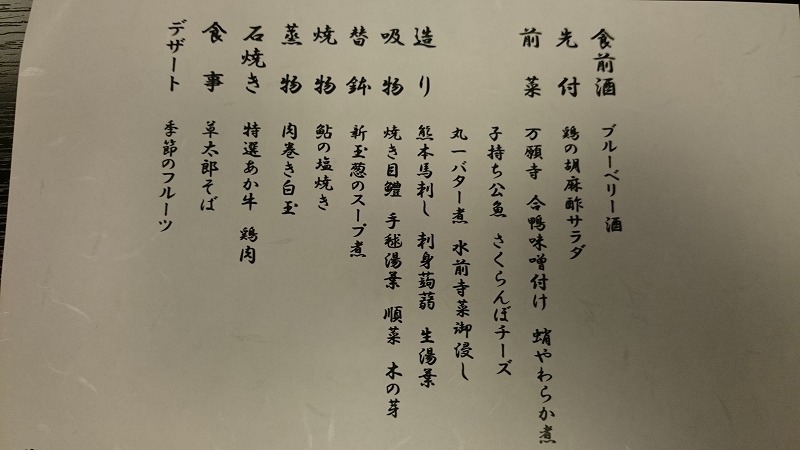 食前酒　ブルーベリー酒
先付　鶏の胡麻酢サラダ
前菜　万願寺　合鴨味噌付け　蛸やわらか煮
子持ち公魚　さくらんぼチーズ
丸一バター煮　水前寺菜御浸し
造り　熊本馬刺し　刺身蒟蒻　生湯葉
吸物　焼き目鱧　手毬湯葉　順菜　木の芽
替鉢　新玉葱のスープ煮
焼物　鮎の塩焼き
蒸物　肉巻き白玉
石焼き　特選あか牛　鶏肉
食事　草太郎そば
デザート　季節のフルーツ